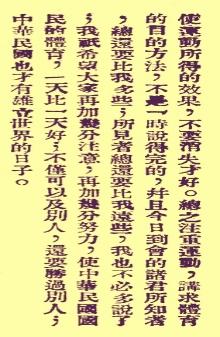 使運動所得的效果，不要消失才好。總之注重運動，講求體育
的目的方法，不是一時說得完的，幷且今日到會的諸君所知者
，總還要比我多些；所見者總還要比我遠些，我也不必多說了
；我祇希望大家再加幾分注意，再加幾分努力，使中華民國國
民的體育，一天比一天好；不僅可以及別人，還要勝過別人；
中華民國也才有雄立世界的日子。